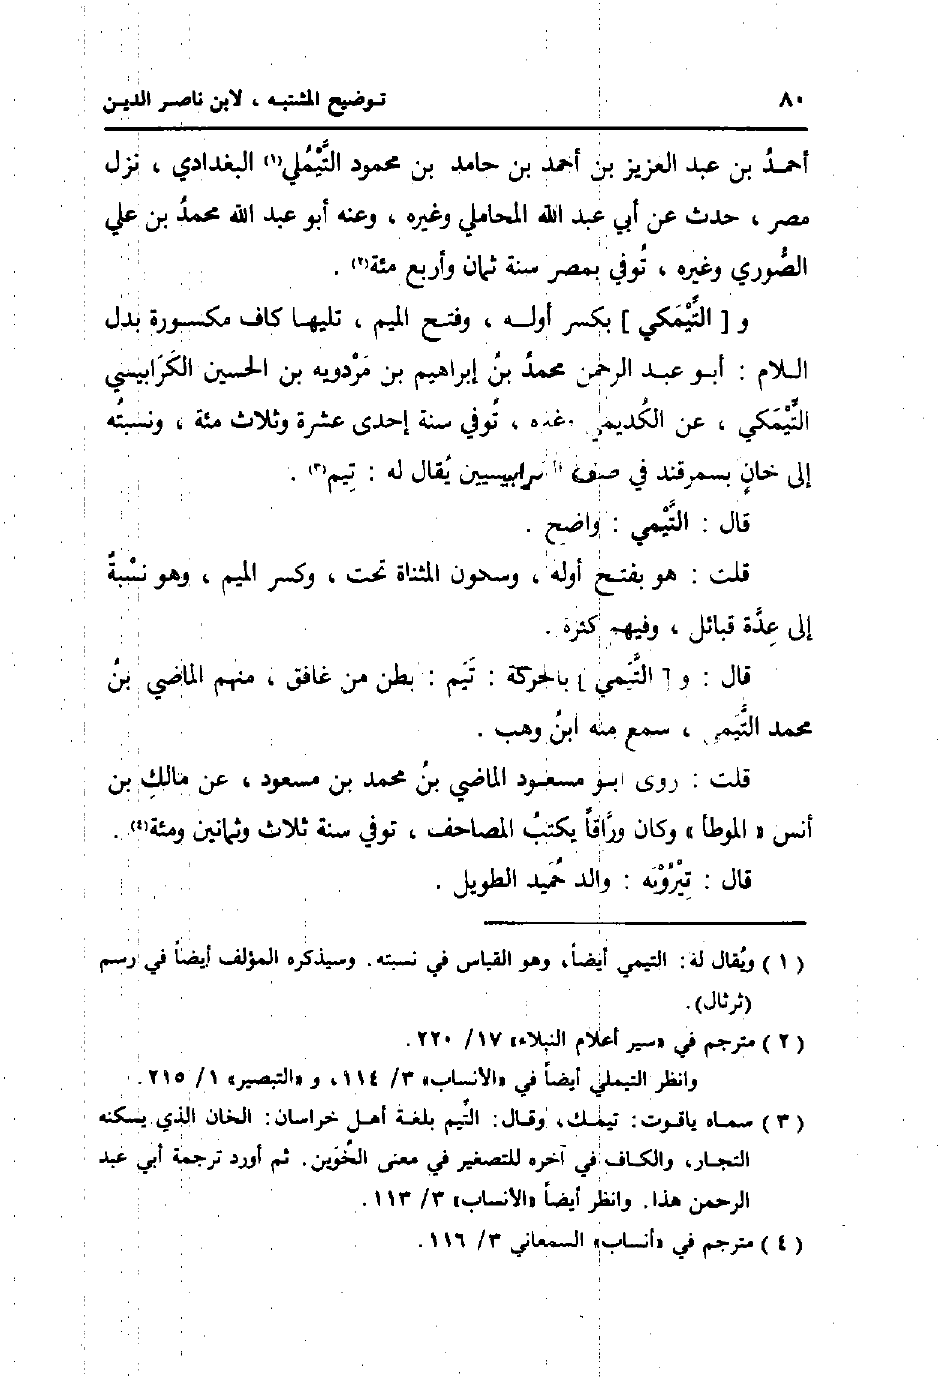 ٨٠ توضيح المشتبه ، لابن ناصر الدين
أحمدُ بن عبد العزيز بن أحمد بن حامد بن محمود التَّيْمُلي(١) البغدادي ، نزل
مصر ، حدث عن أبي عبد الله المحاملي وغيره ، وعنه أبو عبد الله محمدُ بن علي
الصُّوري وغيره ، تُوفي بمصر سنة ثمان وأربع مئة(٢) .
و [ التِّيْمَكي ] بكسر أوله ، وفتح الميم ، تليها كاف مكسورة بدل
اللام : أبو عبد الرحمن محمدُ بنُ إبراهيم بن مَرْدويه بن الحسين الكَرَابيسي
التِّيْمَكي ، عن الكُديمي وغيره ، تُوفي سنة إحدى عشرة وثلاث مئة ، ونسبتُه
إلى خانٍ بسمرقند في صف الكرابيسيين يُقال له : تِيم(٣) .
قال : التَّيْمي : واضح .
قلت : هو بفتح أوله ، وسكون المثناة تحت ، وكسر الميم ، وهو نسْبةٌ
إلى عِدَّة قبائل ، وفيهم كثرة .
قال : و [ التَّيَمي ] بالحركة : تَيَم : بطن من غافق ، منهم الماضي بنُ
محمد التَّيَمي ، سمع منه ابنُ وهب .
قلت : روى أبو مسعود الماضي بنُ محمد بن مسعود ، عن مالكِ بن
أنس « الموطأ » وكان ورَّاقاً يكتبُ المصاحف ، توفي سنة ثلاث وثمانين ومئة(٤) .
قال : تِيْرُوْيَه : والد حُمَيد الطويل .
( ١ ) ويُقال له: التيمي أيضاً، وهو القياس في نسبته. وسيذكره المؤلف أيضاً في رسم
(ثرثال).
( ٢ ) مترجم في «سير أعلام النبلاء» ١٧/ ٢٢٠.
وانظر التيملي أيضاً في «الأنساب» ٣/ ١١٤، و «التبصير» ١/ ٢١٥.
( ٣ ) سماه ياقوت: تيمك، وقال: التِّيم بلغة أهل خراسان: الخان الذي يسكنه
التجار، والكاف في آخره للتصغير في معنى الخُوَين. ثم أورد ترجمة أبي عبد
الرحمن هذا. وانظر أيضاً «الأنساب» ٣/ ١١٣.
( ٤ ) مترجم في «أنساب» السمعاني ٣/ ١١٦.